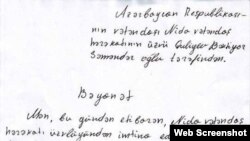 Azərbaycan Respublikası-
nın vətəndaşı Nida vətəndaş
hərəkatının üzvü Quliyev Bəxtiyar
Səməndər oğlu tərəfindən.
Bəyanat
Mən, bu gündən etibarən, Nida vətəndaş
hərəkatı üzvlüyündən imtina ed
Web Screenshot